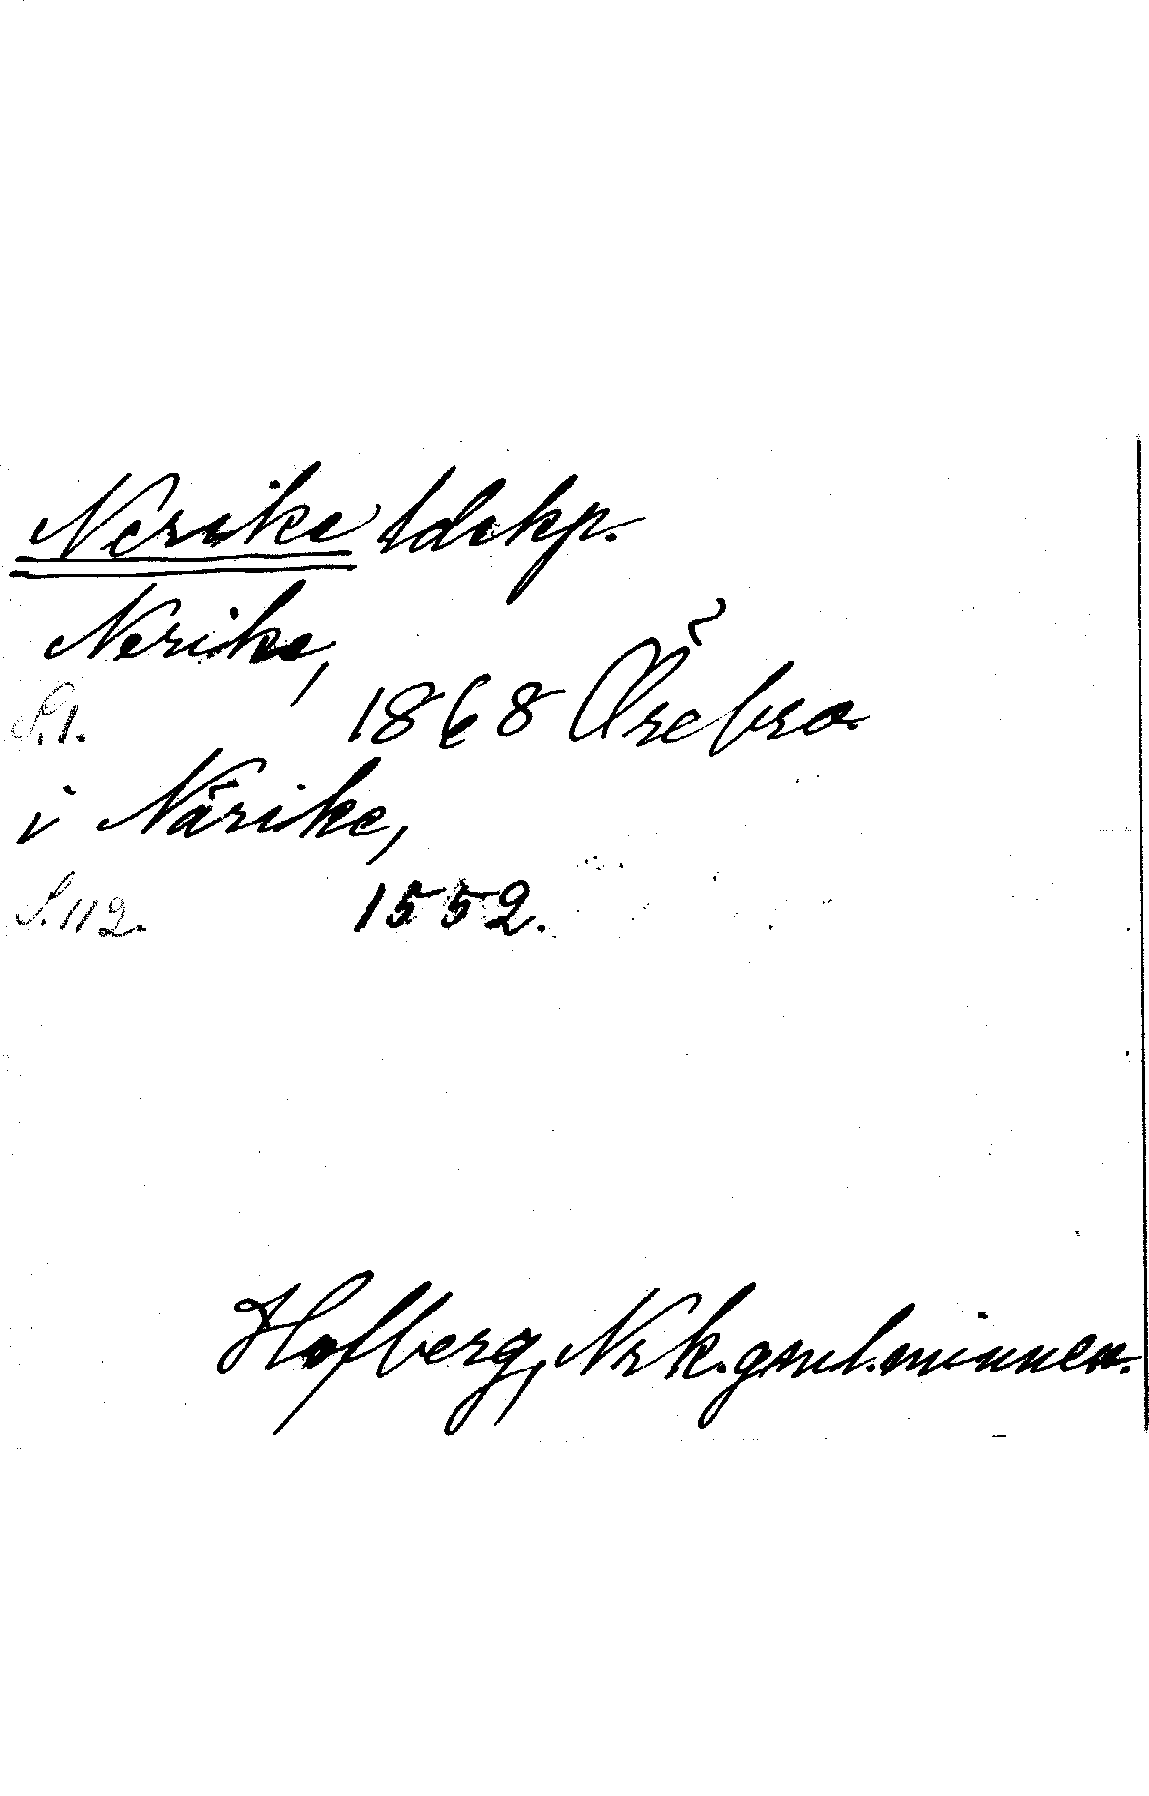 Nerike ldskp.
Nerike,
S. 1. 1868 Örebro
i Närike,
S. 112. 1552.
Hofberg, Nrk. gml. minnen.